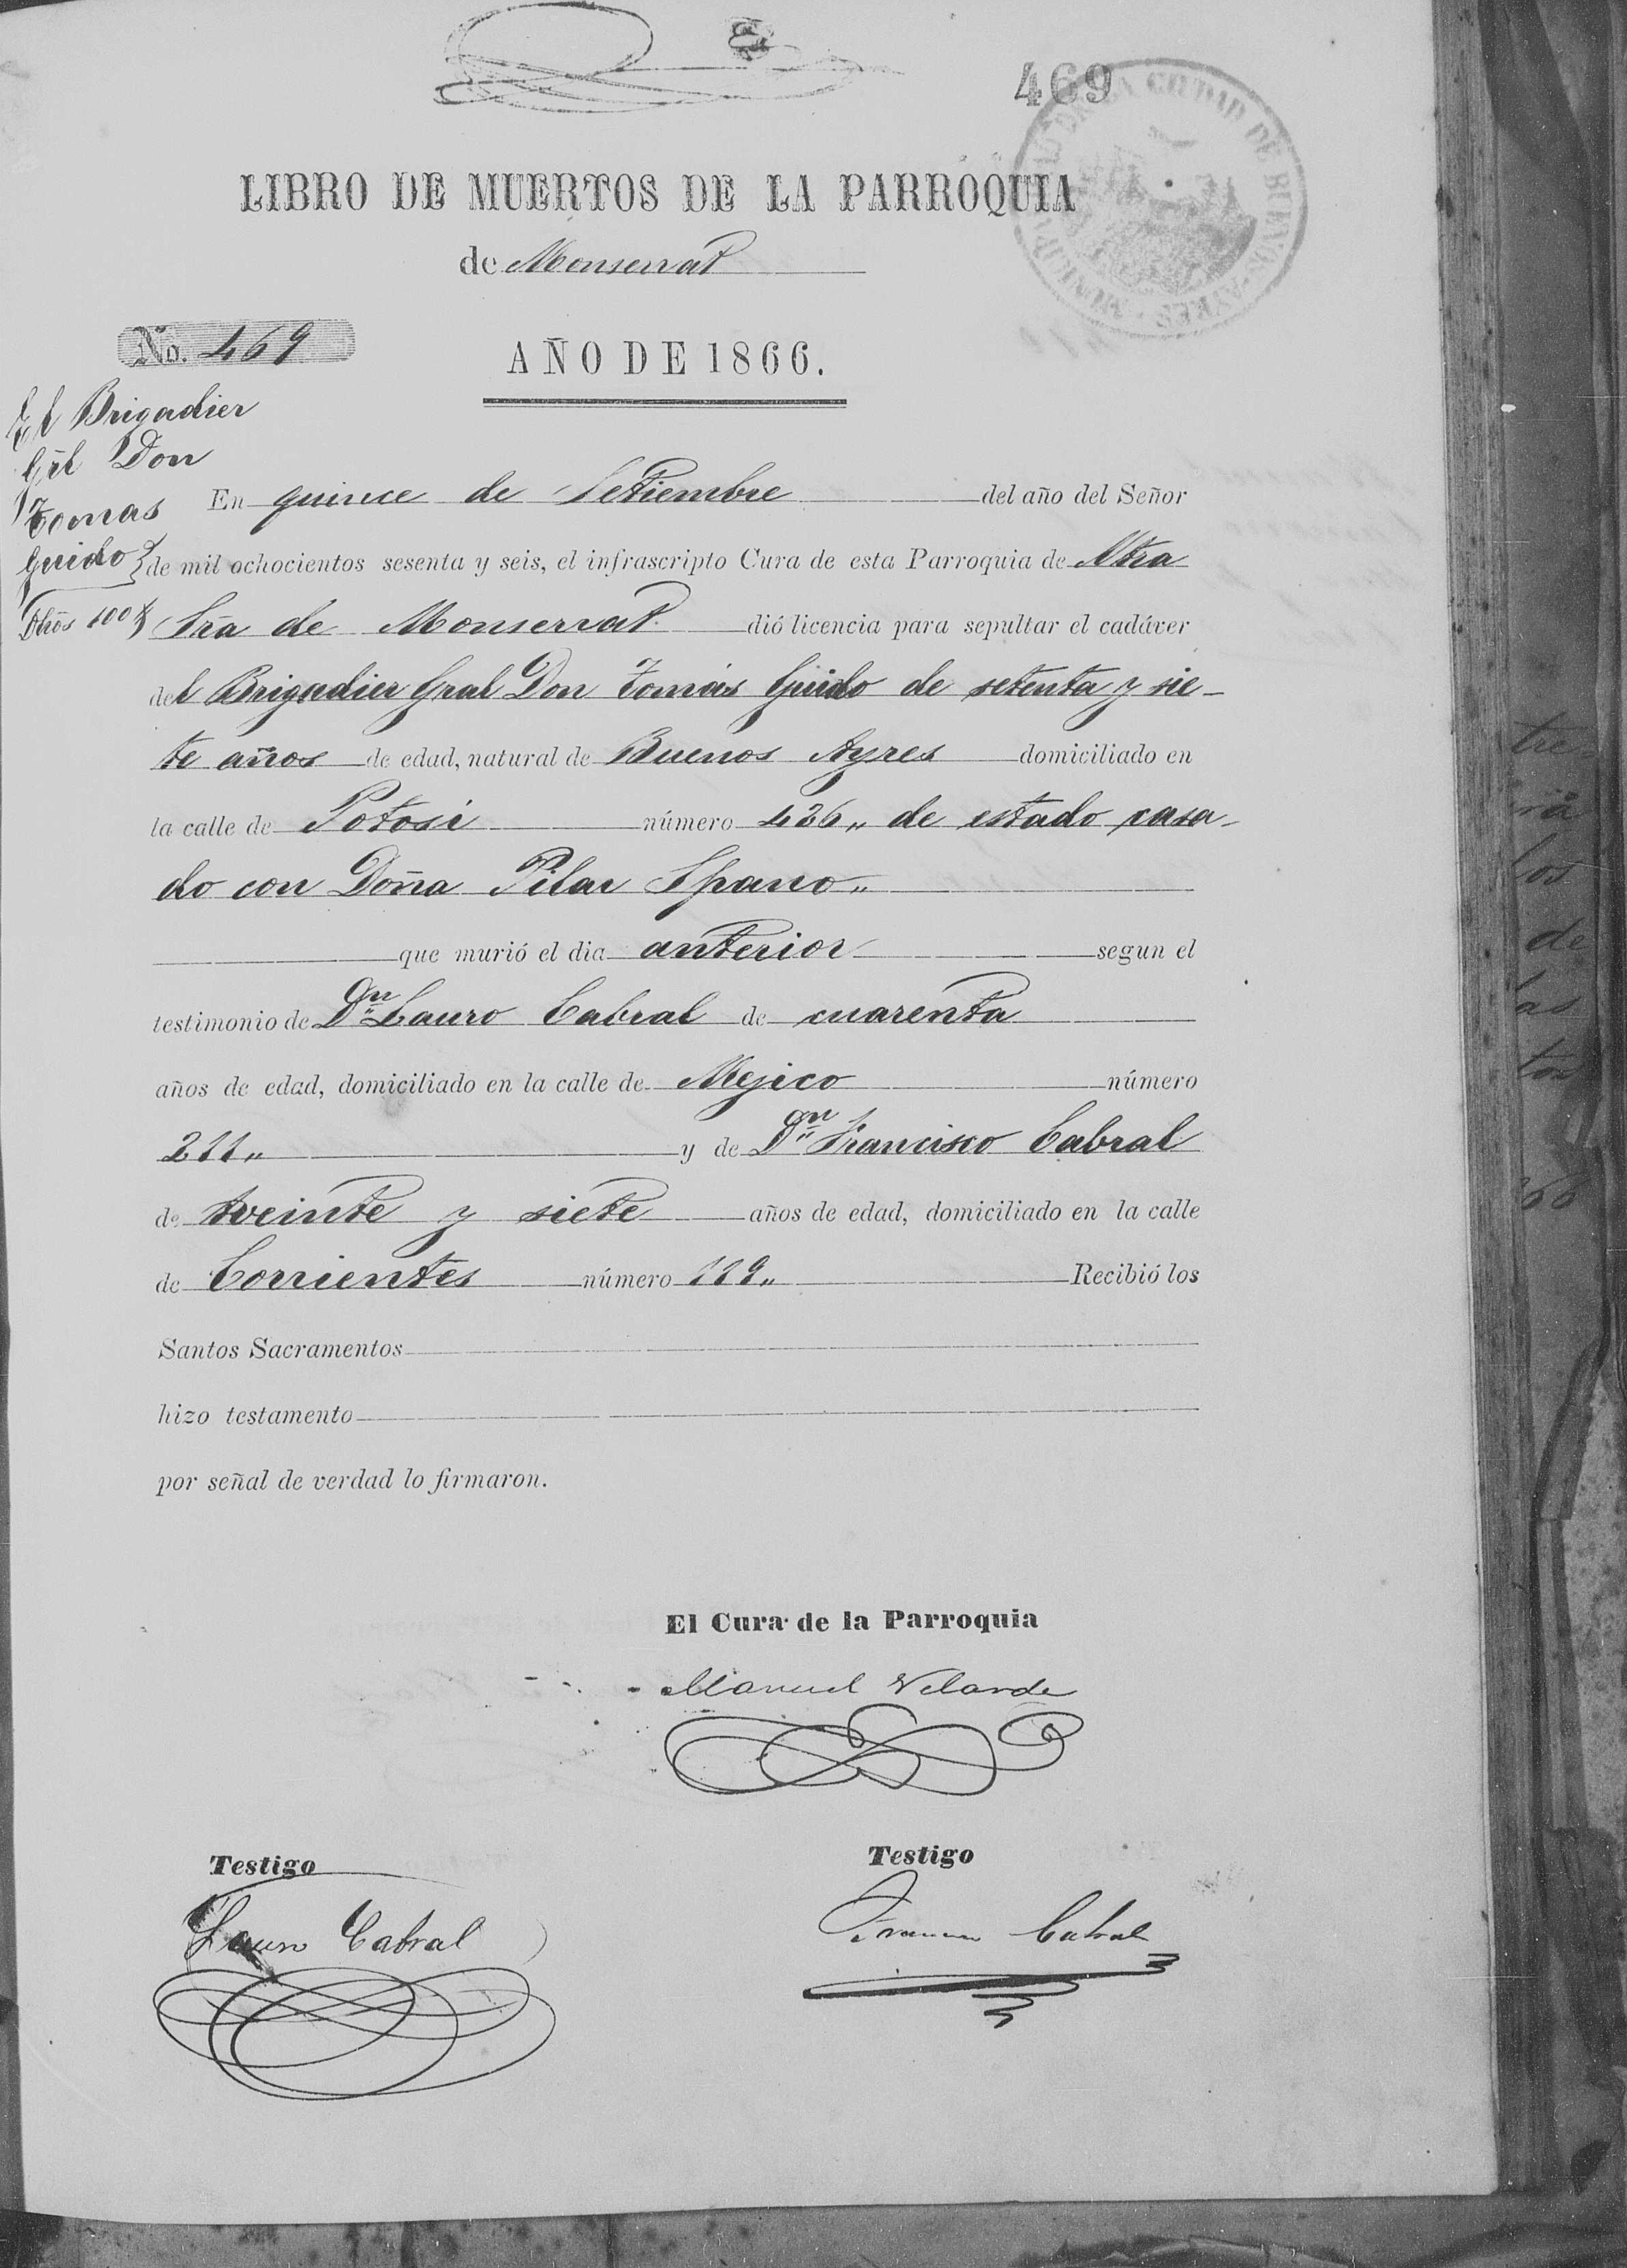 469
MUNICIPALIDAD DE LA CIUDAD DE BUENOS-AYRES
LIBRO DE MUERTOS DE LA PARROQUIA
de Monserrat
No. 469
AÑO DE 1866.
El Brigadier
Grl Don
Tomas
Guido
Dhôs 100 $
En quince de Setiembre del año del Señor
de mil ochocientos sesenta y seis, el infrascripto Cura de esta Parroquia de Ntra
Sra de Monserrat dió licencia para sepultar el cadáver
del Brigadier Gral Don Tomás Guido de setenta y sie-
te años de edad, natural de Buenos Ayres domiciliado en
la calle de Potosí número 426,, de estado casa-
do con Doña Pilar Spano,,
que murió el dia anterior segun el
testimonio de Dn Lauro Cabral de cuarenta
años de edad, domiciliado en la calle de Mejico número
211,, y de Dn Francisco Cabral
de treinte y siete años de edad, domiciliado en la calle
de Corrientes número 119,, Recibió los
Santos Sacramentos
hizo testamento
por señal de verdad lo firmaron.
El Cura de la Parroquia
Manuel Velarde
Testigo
Testigo
Lauro Cabral
Francisco Cabral
tre
de